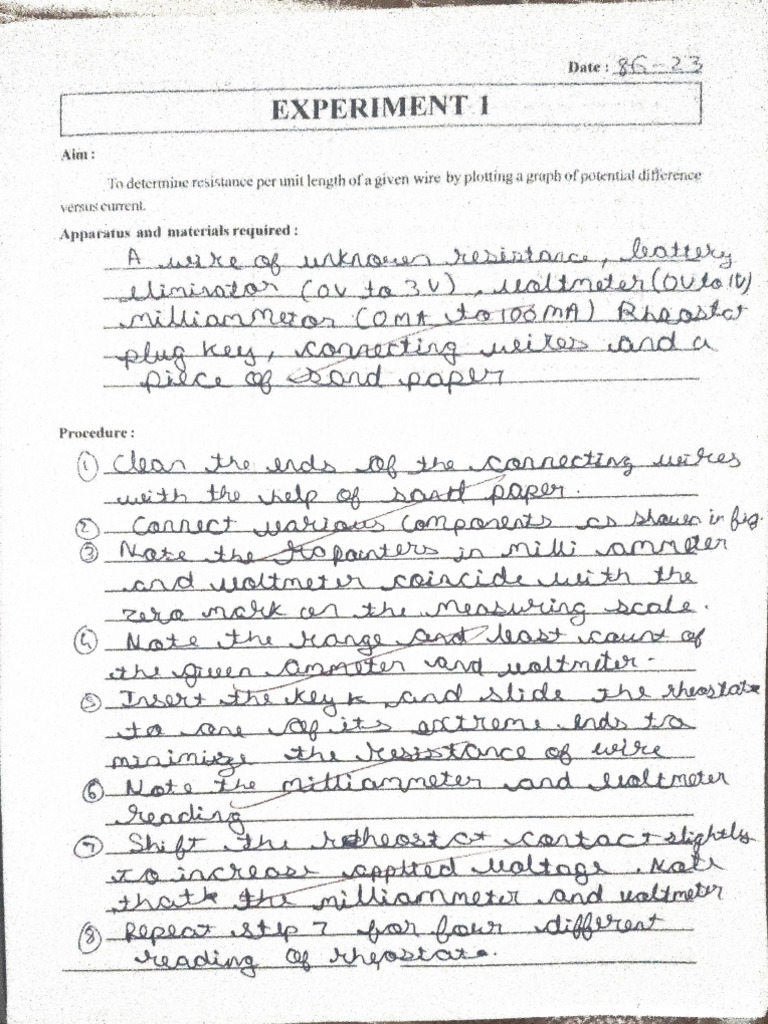 Date : 8G-23
EXPERIMENT 1
Aim :
To determine resistance per unit length of a given wire by plotting a graph of potential difference
versus current.
Apparatus and materials required :
A wire of unknown resistance, battery
eliminator (0V to 3V), voltmeter (0V to 1V)
milliammetor (0MA to 100MA) Rheostat
plug key, connecting weires and a
piece of sand paper
Procedure :
① Clean the ends of the connecting weires
with the help of sand paper.
② Connect various components as shown in fig.
③ Note the pointers in milli ammeter
and voltmeter coincide with the
zero mark on the measuring scale.
④ Note the range and least count of
the given ammeter and voltmeter.
⑤ Insert the key k and slide the rheostat
to one of its extreme ends to
minimize the resistance of wire
⑥ Note the milliammeter and voltmeter
reading
⑦ Shift the rheostat contact slightly
to increase applied voltage. Note
that the milliammeter and voltmeter
⑧ Repeat step 7 for four different
reading of rheostat.